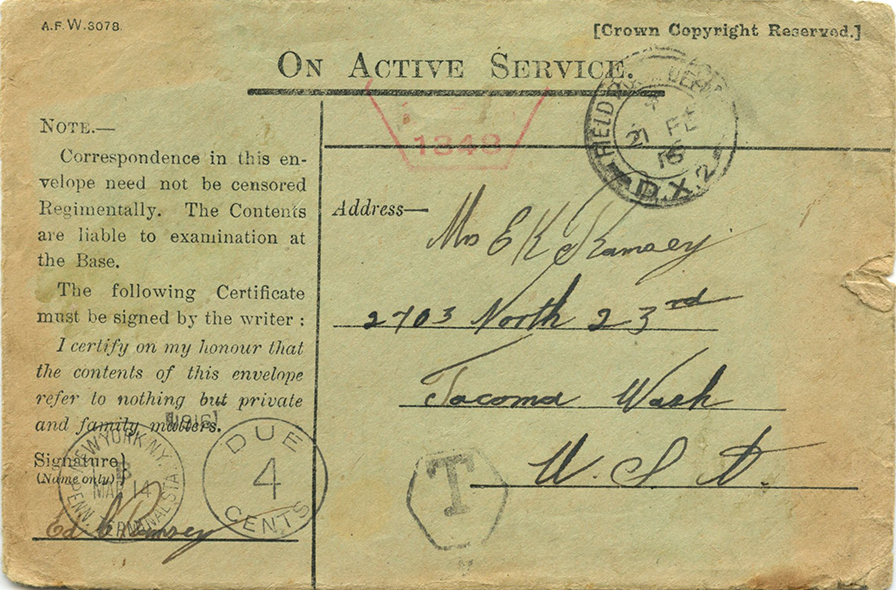 A.F.W.3078.
[Crown Copyright Reserved.]
ON ACTIVE SERVICE.
NOTE.—
Correspondence in this en-
velope need not be censored
Regimentally. The Contents
are liable to examination at
the Base.
The following Certificate
must be signed by the writer :
I certify on my honour that
the contents of this envelope
refer to nothing but private
and family matters.
Signature}
(Name only)
1848
FIELD
21 FE
16
D.X.2
Address—
Mrs E K Ramsey
2703 North 23rd
Tacoma Wash
U. S. A.
[1916]
NEW YORK N.Y.
MAR 14
PENN. TERMINAL STA.
DUE
4
CENTS
T
Ed Ramsey